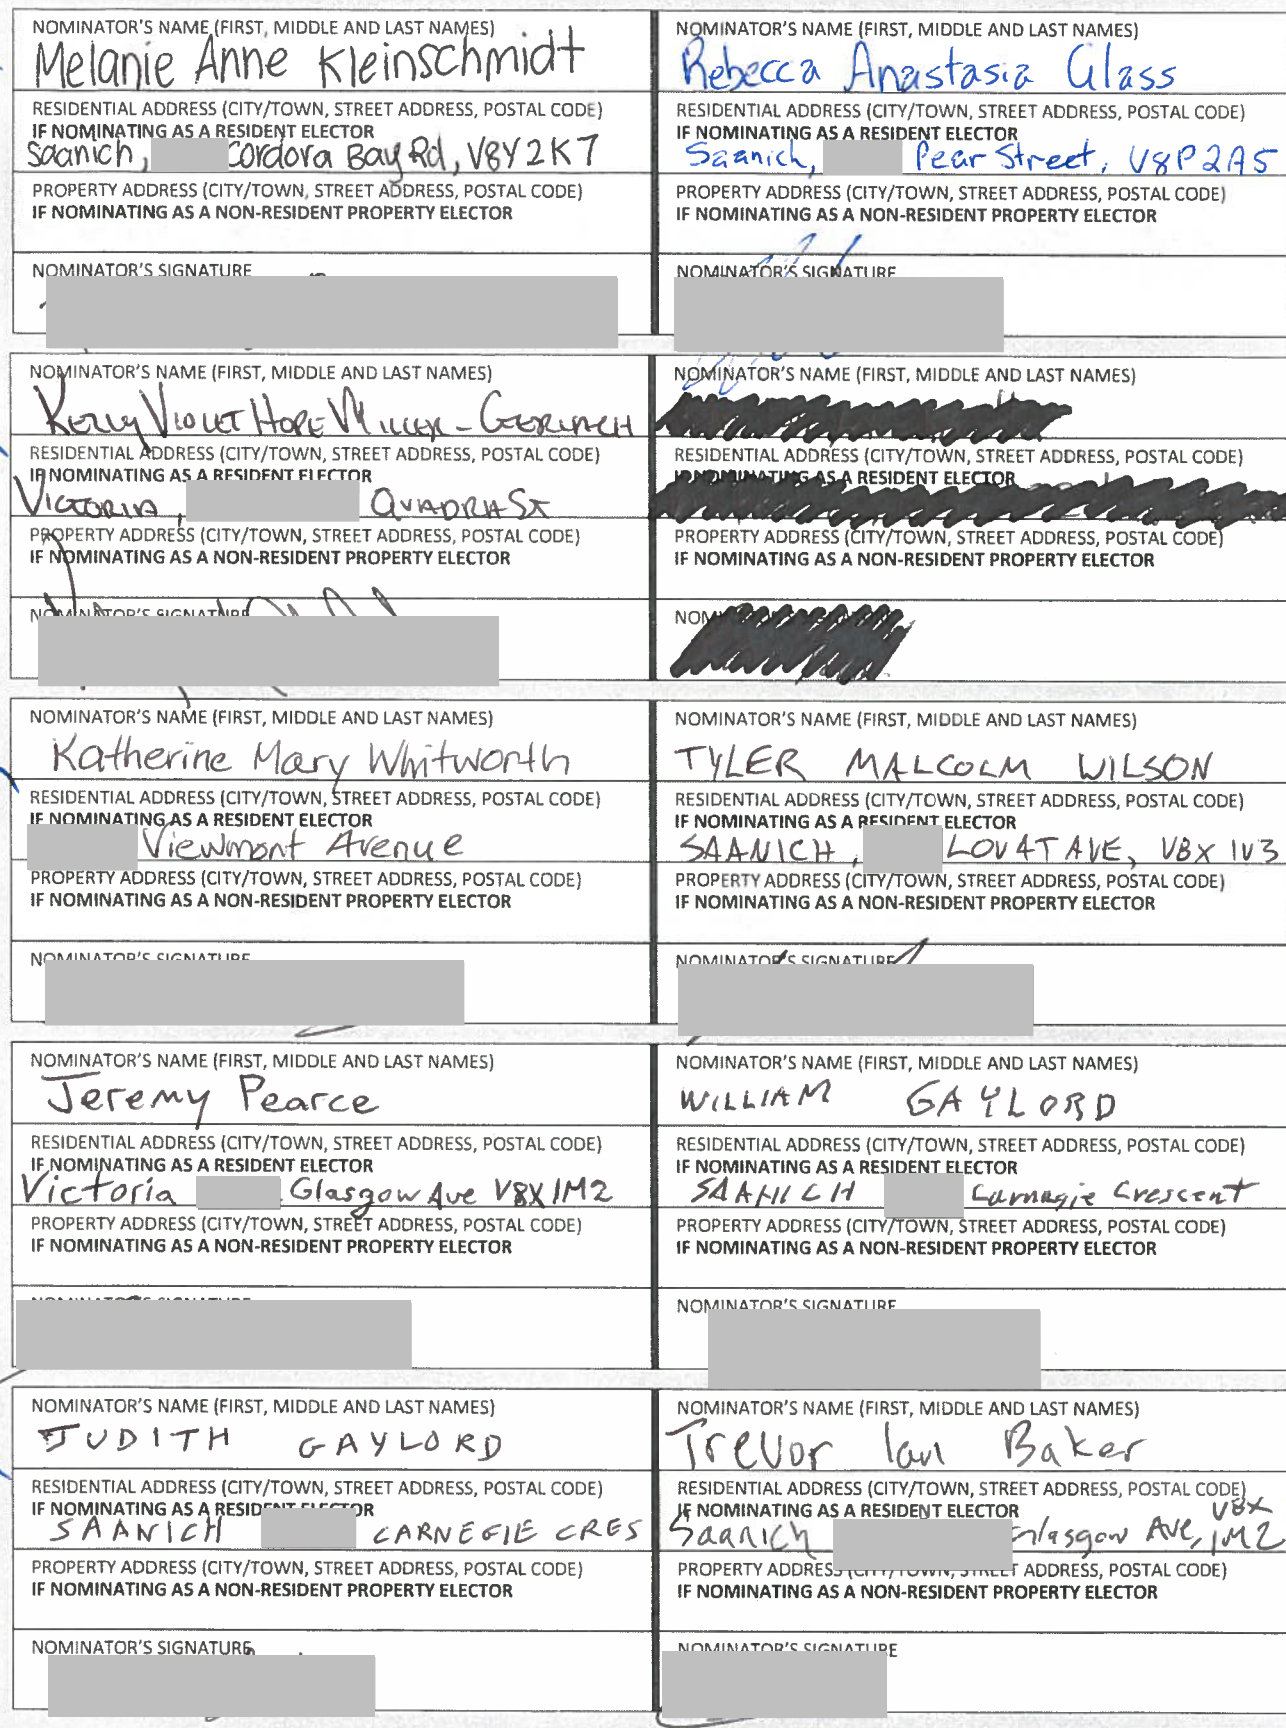 NOMINATOR'S NAME (FIRST, MIDDLE AND LAST NAMES)
Melanie Anne Kleinschmidt
RESIDENTIAL ADDRESS (CITY/TOWN, STREET ADDRESS, POSTAL CODE)
IF NOMINATING AS A RESIDENT ELECTOR
Saanich, Cordora Bay Rd, V8Y2K7
PROPERTY ADDRESS (CITY/TOWN, STREET ADDRESS, POSTAL CODE)
IF NOMINATING AS A NON-RESIDENT PROPERTY ELECTOR
NOMINATOR'S SIGNATURE
NOMINATOR'S NAME (FIRST, MIDDLE AND LAST NAMES)
Rebecca Anastasia Glass
RESIDENTIAL ADDRESS (CITY/TOWN, STREET ADDRESS, POSTAL CODE)
IF NOMINATING AS A RESIDENT ELECTOR
Saanich, Pear Street, V8P2A5
PROPERTY ADDRESS (CITY/TOWN, STREET ADDRESS, POSTAL CODE)
IF NOMINATING AS A NON-RESIDENT PROPERTY ELECTOR
NOMINATOR'S SIGNATURE
NOMINATOR'S NAME (FIRST, MIDDLE AND LAST NAMES)
Kelly Violet Hope Miller-
RESIDENTIAL ADDRESS (CITY/TOWN, STREET ADDRESS, POSTAL CODE)
IF NOMINATING AS A RESIDENT ELECTOR
VICTORIA, QUADRA ST
PROPERTY ADDRESS (CITY/TOWN, STREET ADDRESS, POSTAL CODE)
IF NOMINATING AS A NON-RESIDENT PROPERTY ELECTOR
NOMINATOR'S SIGNATURE
NOMINATOR'S NAME (FIRST, MIDDLE AND LAST NAMES)
RESIDENTIAL ADDRESS (CITY/TOWN, STREET ADDRESS, POSTAL CODE)
IF NOMINATING AS A RESIDENT ELECTOR
PROPERTY ADDRESS (CITY/TOWN, STREET ADDRESS, POSTAL CODE)
IF NOMINATING AS A NON-RESIDENT PROPERTY ELECTOR
NOMINATOR'S NAME (FIRST, MIDDLE AND LAST NAMES)
Katherine Mary Whitworth
RESIDENTIAL ADDRESS (CITY/TOWN, STREET ADDRESS, POSTAL CODE)
IF NOMINATING AS A RESIDENT ELECTOR
Viewmont Avenue
PROPERTY ADDRESS (CITY/TOWN, STREET ADDRESS, POSTAL CODE)
IF NOMINATING AS A NON-RESIDENT PROPERTY ELECTOR
NOMINATOR'S SIGNATURE
NOMINATOR'S NAME (FIRST, MIDDLE AND LAST NAMES)
TYLER MALCOLM WILSON
RESIDENTIAL ADDRESS (CITY/TOWN, STREET ADDRESS, POSTAL CODE)
IF NOMINATING AS A RESIDENT ELECTOR
SAANICH, LOVAT AVE, V8X 1V3
PROPERTY ADDRESS (CITY/TOWN, STREET ADDRESS, POSTAL CODE)
IF NOMINATING AS A NON-RESIDENT PROPERTY ELECTOR
NOMINATOR'S SIGNATURE
NOMINATOR'S NAME (FIRST, MIDDLE AND LAST NAMES)
Jeremy Pearce
RESIDENTIAL ADDRESS (CITY/TOWN, STREET ADDRESS, POSTAL CODE)
IF NOMINATING AS A RESIDENT ELECTOR
Victoria Glasgow Ave V8X 1M2
PROPERTY ADDRESS (CITY/TOWN, STREET ADDRESS, POSTAL CODE)
IF NOMINATING AS A NON-RESIDENT PROPERTY ELECTOR
NOMINATOR'S NAME (FIRST, MIDDLE AND LAST NAMES)
WILLIAM GAYLORD
RESIDENTIAL ADDRESS (CITY/TOWN, STREET ADDRESS, POSTAL CODE)
IF NOMINATING AS A RESIDENT ELECTOR
SAANICH Carnegie Crescent
PROPERTY ADDRESS (CITY/TOWN, STREET ADDRESS, POSTAL CODE)
IF NOMINATING AS A NON-RESIDENT PROPERTY ELECTOR
NOMINATOR'S SIGNATURE
NOMINATOR'S NAME (FIRST, MIDDLE AND LAST NAMES)
JUDITH GAYLORD
RESIDENTIAL ADDRESS (CITY/TOWN, STREET ADDRESS, POSTAL CODE)
IF NOMINATING AS A RESIDENT ELECTOR
SAANICH CARNEGIE CRES
PROPERTY ADDRESS (CITY/TOWN, STREET ADDRESS, POSTAL CODE)
IF NOMINATING AS A NON-RESIDENT PROPERTY ELECTOR
NOMINATOR'S SIGNATURE
NOMINATOR'S NAME (FIRST, MIDDLE AND LAST NAMES)
Trevor Ian Baker
RESIDENTIAL ADDRESS (CITY/TOWN, STREET ADDRESS, POSTAL CODE)
IF NOMINATING AS A RESIDENT ELECTOR V8X
Saanich Glasgow Ave, 1M2
PROPERTY ADDRESS (CITY/TOWN, STREET ADDRESS, POSTAL CODE)
IF NOMINATING AS A NON-RESIDENT PROPERTY ELECTOR
NOMINATOR'S SIGNATURE